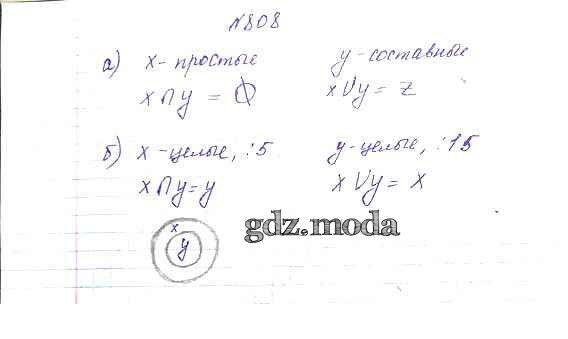 №808
а) x - простые y - составные
x ∩ y = ∅ x ∪ y = Z
б) x - целые, : 5 y - целые, : 15
x ∩ y = y x ∪ y = x
x
y
gdz.moda